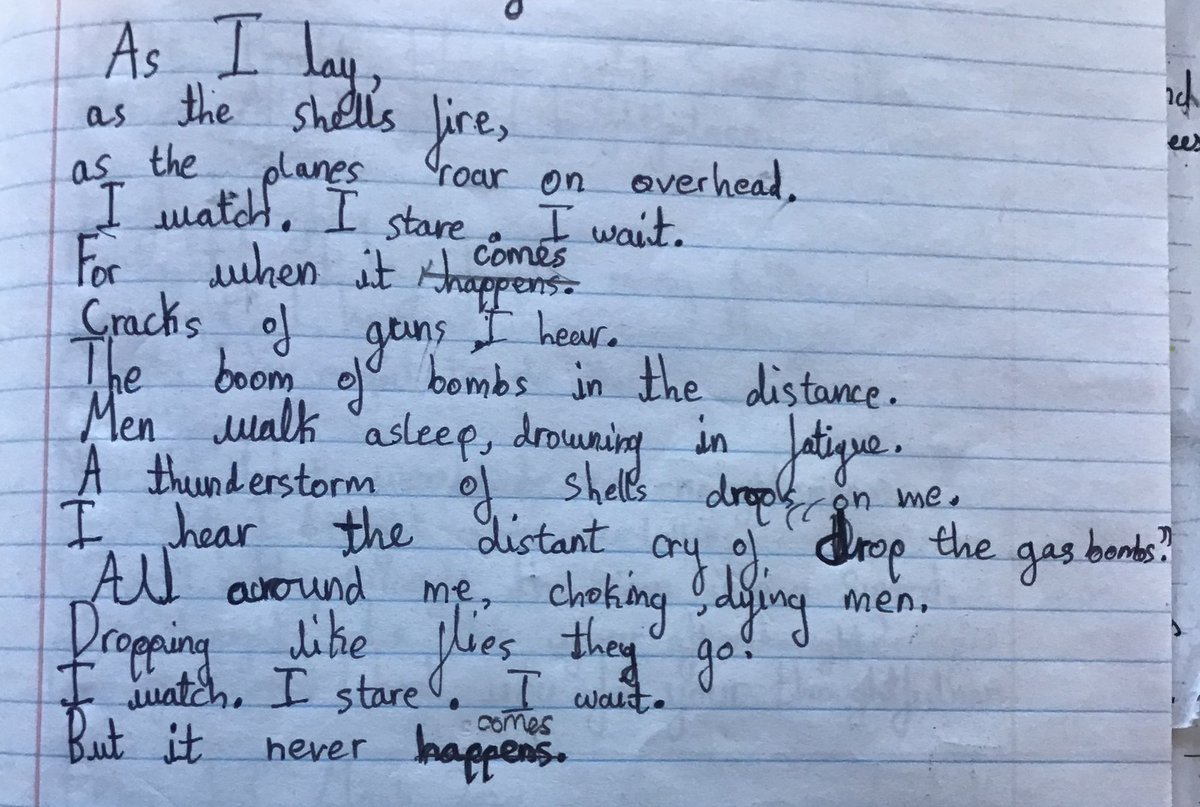 As I lay,
as the shells fire,
as the planes roar on overhead.
I watch. I stare. I wait.
For when it comes
happens.
Cracks of guns, I hear.
The boom of bombs in the distance.
Men walk asleep, drowning in fatigue.
A thunderstorm of shells drops on me.
I hear the distant cry of "Drop the gas bombs."
All around me, choking, dying men.
Dropping like flies they go.
I watch. I stare. I wait.
But it never comes
happens.